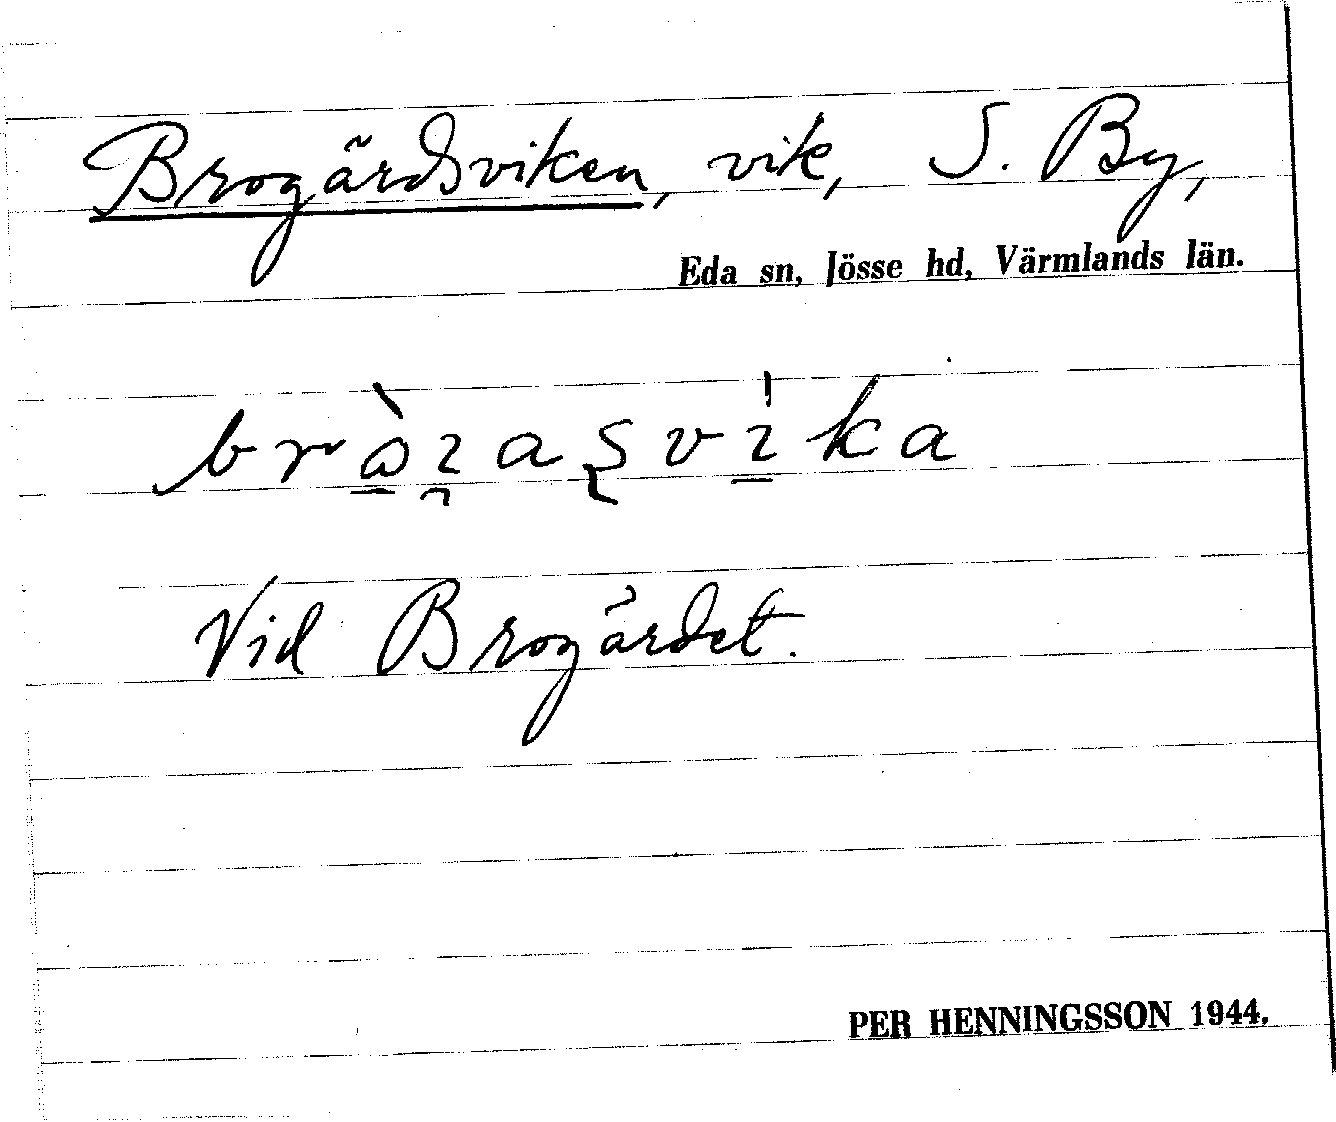 Brogärdsviken, vik, S. By,
Eda sn, Jösse hd, Värmlands län.
Vid Brogärdet.
PER HENNINGSSON 1944.